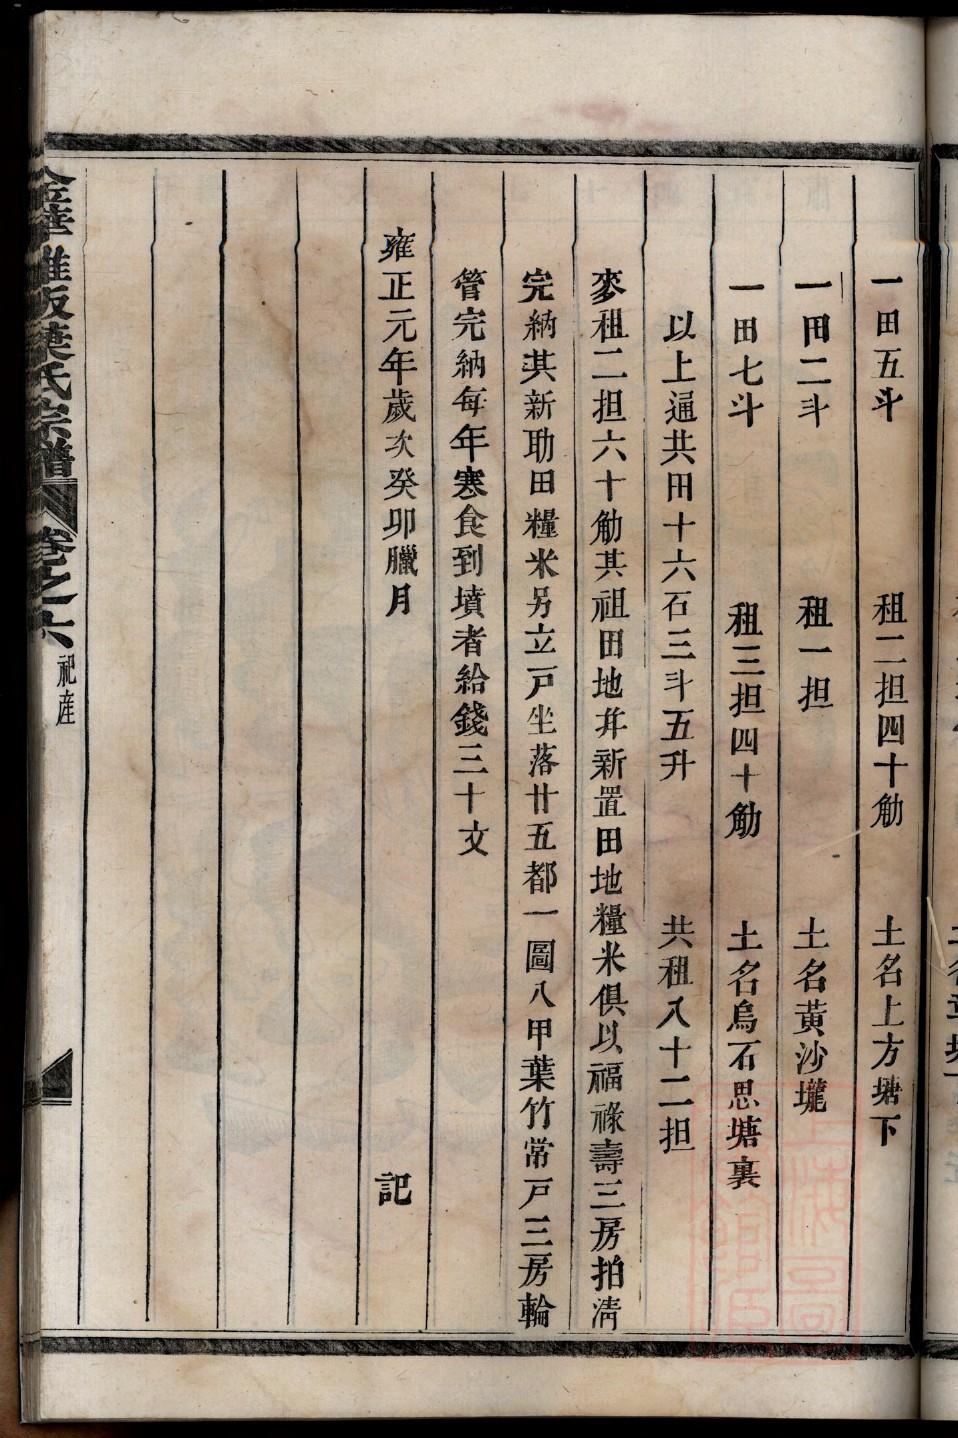 一田五斗　租二担四十觔　土名上方塘下
一田二斗　租一担　土名黄沙壠
一田七斗　租三担四十觔　土名烏石思塘裏
以上通共田十六石三斗五升　共租八十二担
麥租二担六十觔其祖田地并新置田地糧米俱以福祿壽三房拍淸
完納其新助田糧米另立一戸坐落廿五都一圖八甲葉竹常戸三房輪
管完納每年寒食到墳者給錢三十文
雍正元年歲次癸卯臘月　記
金華雅坂葉氏宗譜　卷之六　祀産